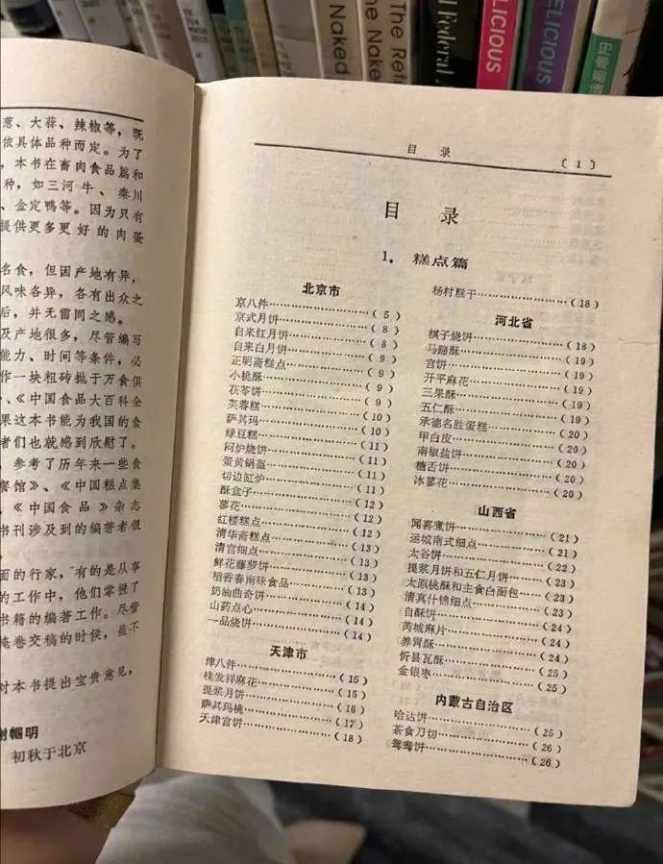 The Ret
Naked
the Nake
Federal
LICIOUS
ELICIOUS
葱、大蒜、辣椒等，既
依具体品种而定。为了
，本书在畜肉食品篇和
种，如三河牛、秦川
、金定鸭等。因为只有
提供更多更好的肉蛋
名食，但因产地有异，
风味各异，各有出众之
后，并无雷同之感。
及产地很多，尽管编写
能力、时间等条件，必
作一块粗砖抛于万食俱
、《中国食品大百科全
果这本书能为我国的食
者们也就感到欣慰了。
，参考了历年来一些食
餐馆》、《中国糕点集
，《中国食品》杂志
书刊涉及到的编著者很
面的行家，有的是从事
的工作中，他们掌握了
书籍的编著工作。尽管
掩卷交稿的时侯，虽不
对本书提出宝贵意见，
帼明
初秋于北京
目 录 （1）
目 录
1. 糕点篇
北京市
京八件……（5）
京式月饼……（8）
自来红月饼……（8）
自来白月饼……（9）
正明斋糕点……（9）
小桃酥……（9）
茯苓饼……（9）
芙蓉糕……（10）
萨其玛……（10）
绿豆糕……（11）
闷炉烧饼……（11）
蛋黄锅盔……（11）
切边缸炉……（11）
酥盒子……（12）
蓼花……（12）
红楼糕点……（12）
清华斋糕点……（13）
清宫细点……（13）
鲜花藤萝饼……（13）
稻香春南味食品……（13）
奶油曲奇饼……（14）
山药点心……（14）
一品烧饼……（14）
天津市
津八件……（15）
桂发祥麻花……（15）
提浆月饼……（16）
萨其玛桃……（17）
天津宫饼……（18）
杨村糕干……（18）
河北省
棋子烧饼……（18）
马蹄酥……（19）
宫饼……（19）
开平麻花……（19）
三果酥……（19）
五仁酥……（19）
承德名胜蛋糕……（20）
甲白皮……（20）
南椒盐饼……（20）
糖舌饼……（20）
冰蓼花……（20）
山西省
闻喜煮饼……（21）
运城南式细点……（21）
太谷饼……（22）
提浆月饼和五仁月饼……（23）
太原桃酥和主食白面包……（23）
清真什锦细点……（23）
自酥饼……（24）
芮城麻片……（24）
养胃酥……（24）
忻县瓦酥……（25）
金银枣……（25）
内蒙古自治区
哈达饼……（25）
茶食刀切……（26）
鸳鸯饼……（26）